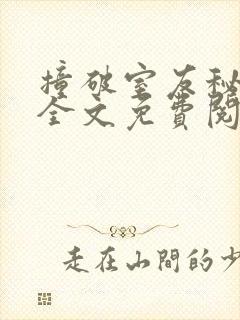 撞破室友秘
全文免費閱
走在山間的少